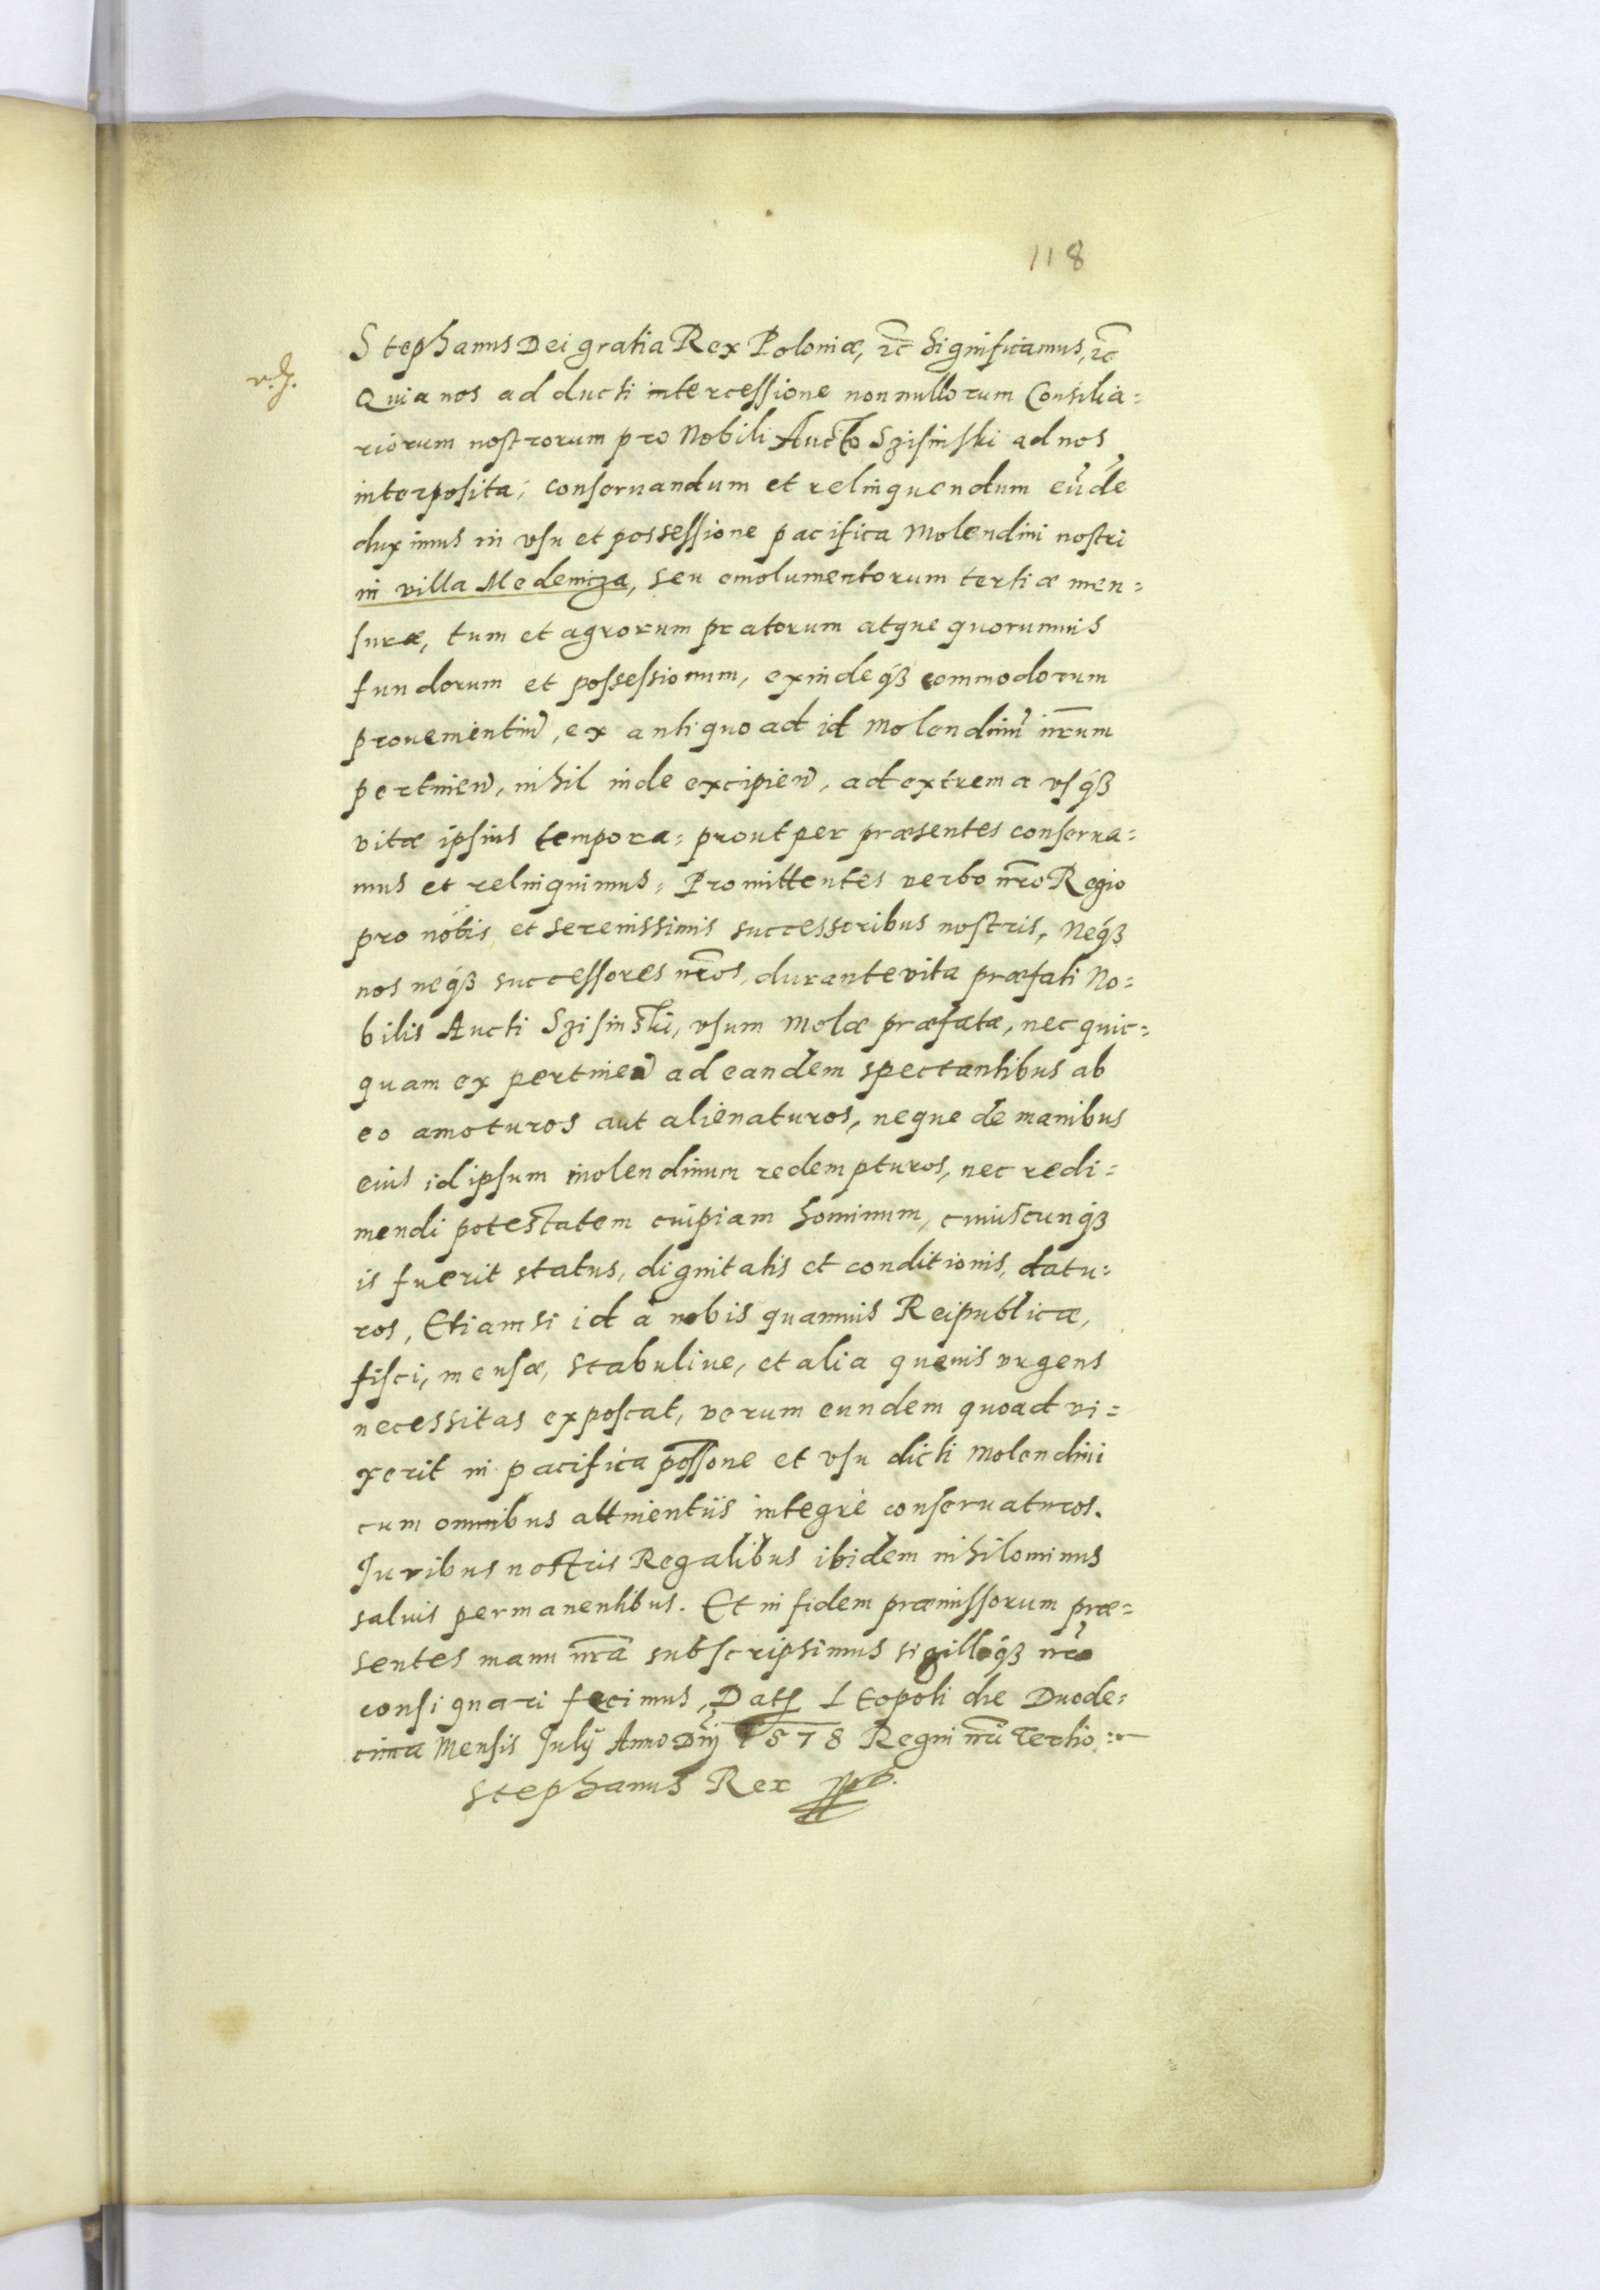 118
Stephanus Dei gratia Rex Poloniæ, ꝛc̄ Significamus, ꝛc̄
Quia nos adducti intercessione nonnullorum Consilia=
riorum nostrorum pro Nobili Aucto Szisinski ad nos
interposita, conseruandum et relinquendum eũde
duximus in vsu et possessione pacifica Molendini nostri
in villa Medenicza, seu emolumentorum tertiæ men=
suræ, tum et agrorum pratorum atque quorumuis
fundorum et possessionum, exindeq́ꝫ commodorum
prouenientiũ, ex antiquo ad id Molendinũ nr̄um
pertinen̄, nihil inde excipien̄, ad extrema vsq́ꝫ
vitæ ipsius tempora: prout per præsentes conserua=
mus et relinquimus: Promittentes verbo nr̄o Regio
pro nobis et serenissimis successoribus nostris, Neq́ꝫ
nos neq́ꝫ successores nr̄os, durante vita præfati No=
bilis Aucti Szisinski, vsum Molæ præfatæ, nec quic=
quam ex pertinen̄ ad eandem spectantibus ab
eo amoturos aut alienaturos, neque de manibus
eius id ipsum molendinum redempturos, nec redi=
mendi potestatem cuipiam hominum, cuiuscunq́ꝫ
is fuerit status, dignitatis et conditionis, datu=
ros, Etiamsi id à nobis quamuis Reipublicæ,
fisci, mensæ, stabuliue, et alia quæuis vrgens
necessitas exposcat, verum eundem quoad vi=
xerit in pacifica posśone et vsu dicti Molendini
cum omnibus attinentiis integrè conseruaturos.
Juribus nostris Regalibus ibidem nihilominus
saluis permanentibus. Et in fidem præmissorum præ=
sentes manu nr̄a subscripsimus sigilloq́ꝫ nr̄o
consignari fecimus, Datꝭ Leopoli die Duode=
cima Mensis Julÿ Anno Dnĩ 1578 Regni nr̄i Tertio
Stephanus Rex